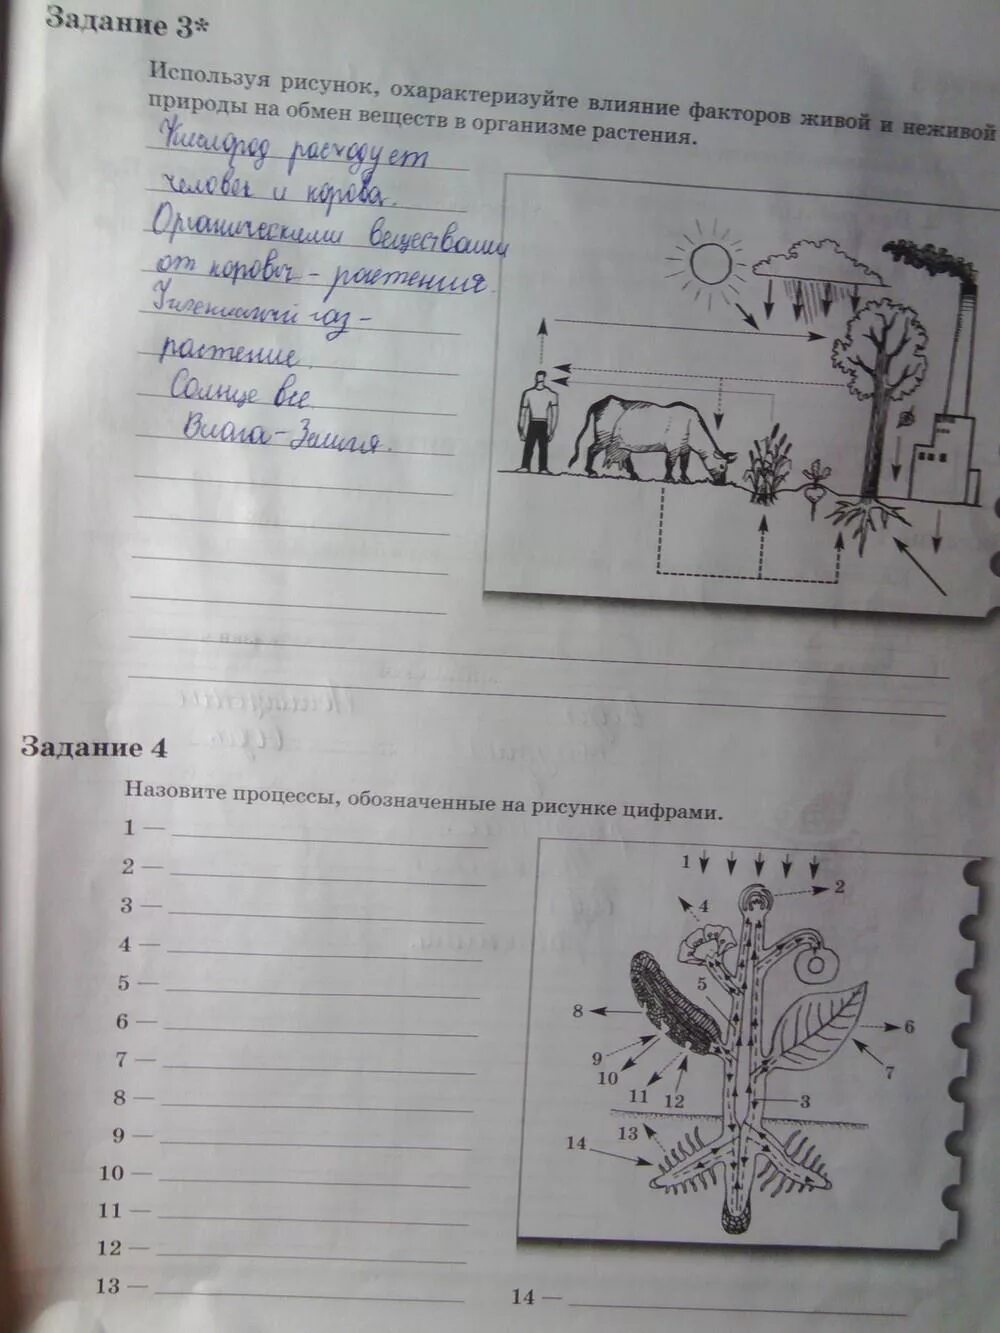 Задание 3*
Используя рисунок, охарактеризуйте влияние факторов живой и неживой
природы на обмен веществ в организме растения.
Кислород расходует
человек и корова.
Органическими веществами
от коровы - растения.
газ -
растение.
Солнце все
Влага - Земля.
Задание 4
Назовите процессы, обозначенные на рисунке цифрами.
1 —
2 —
3 —
4 —
5 —
6 —
7 —
8 —
9 —
10 —
11 —
12 —
13 —
14 —
1
2
4
5
8
6
9
7
10
11
12
3
13
14